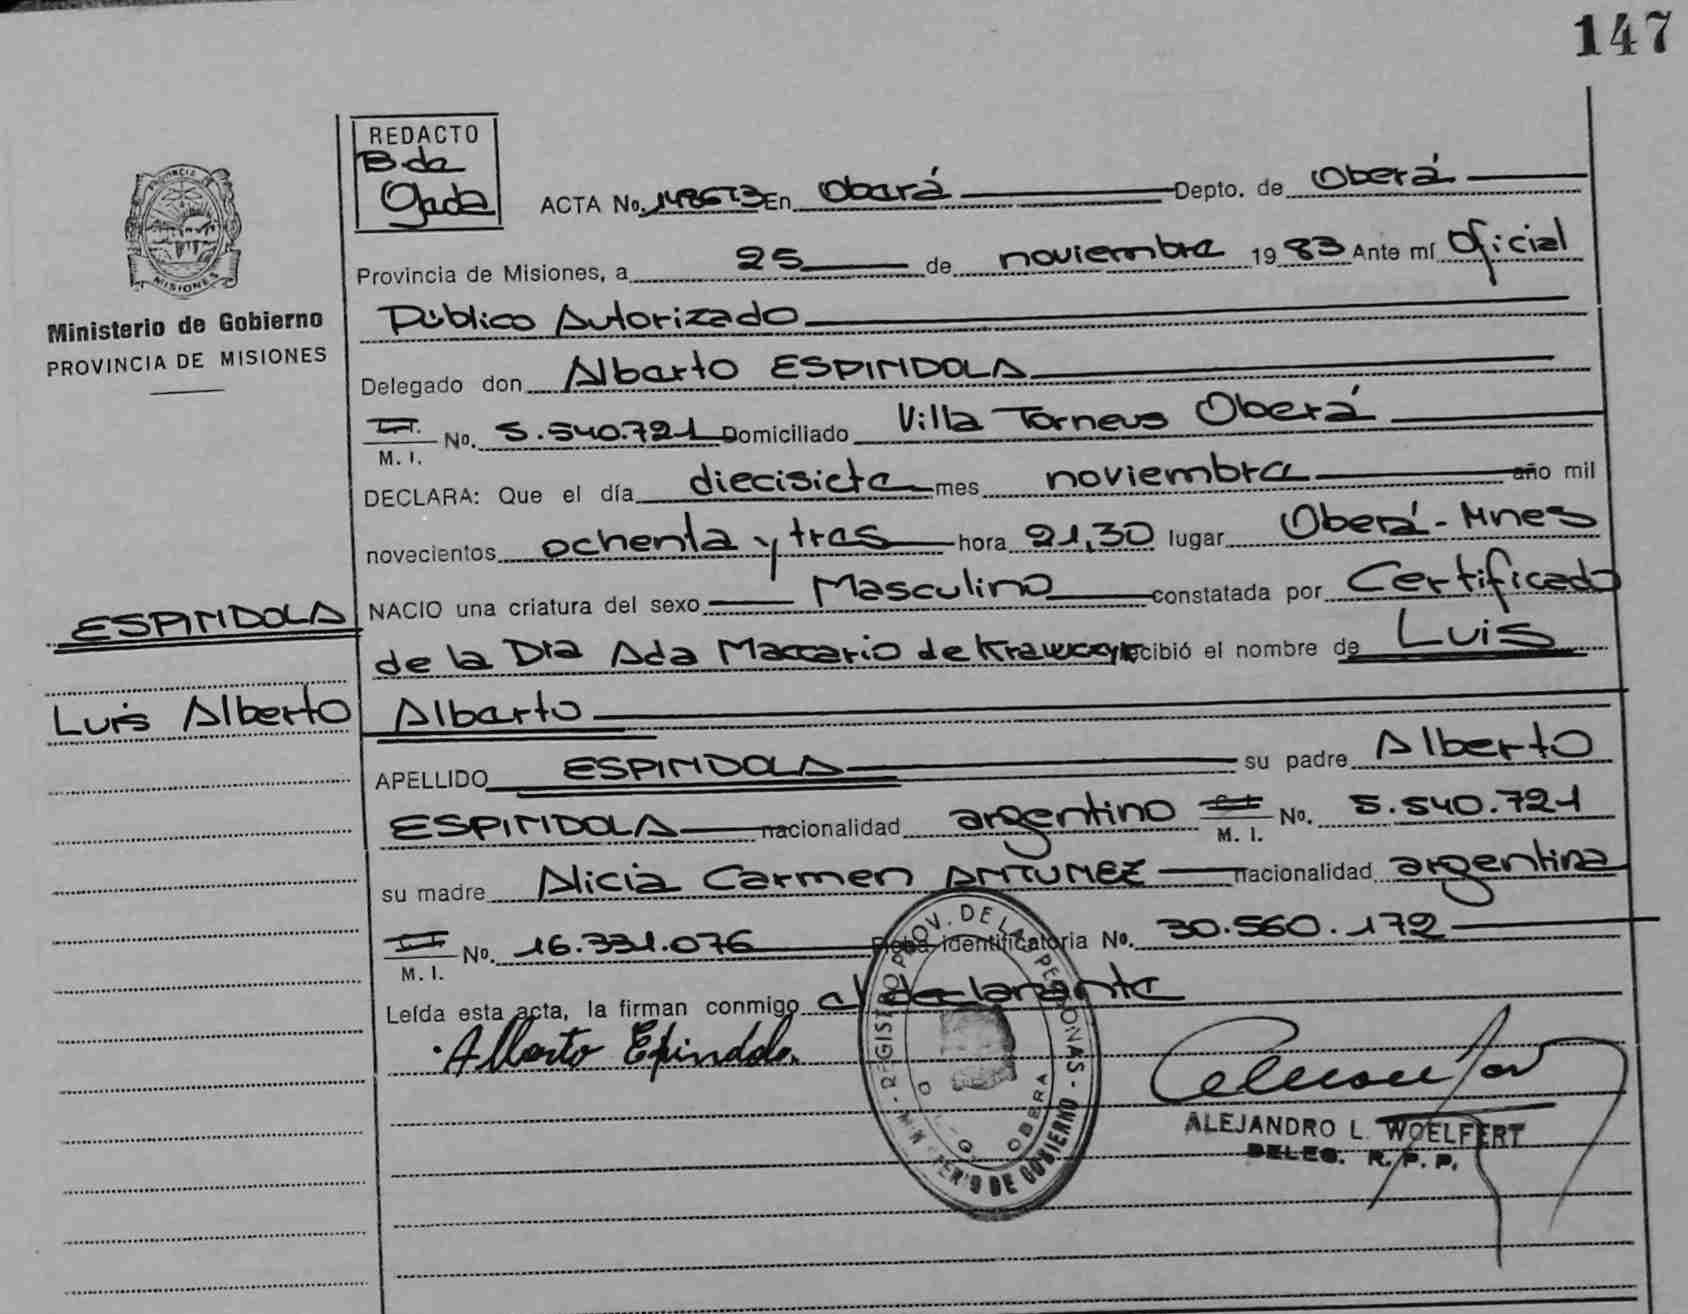 147
REDACTO
B. de
Ojeda
ACTA No. En Oberá Depto. de Oberá
Provincia de Misiones, a 25 de noviembre 1983 Ante mí Oficial
Público Autorizado
Ministerio de Gobierno
PROVINCIA DE MISIONES
Delegado don Alberto ESPINDOLA
M. I. No. 5.540.721 Domiciliado Villa Torneus Oberá
DECLARA: Que el día diecisiete mes noviembre año mil
novecientos ochenta y tres hora 21,30 lugar Oberá - Mnes
NACIO una criatura del sexo Masculino constatada por Certificado
de la Dra Ada Maccario de recibió el nombre de Luis
Alberto
ESPINDOLA
Luis Alberto
APELLIDO ESPINDOLA su padre Alberto
ESPINDOLA nacionalidad argentino M. I. No. 5.540.721
su madre Alicia Carmen ANTUNEZ nacionalidad argentina
M. I. No. 16.331.076 Ficha identificatoria No. 30.560.172
Leída esta acta, la firman conmigo el declarante
Alberto Espindola
ALEJANDRO L. WOELFERT
DELEG. R. P. P.
OBERA